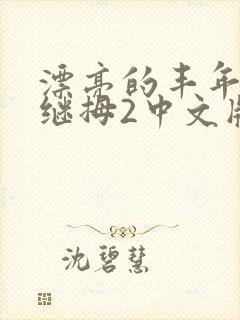 漂亮的丰年
继拇2中文版
沈碧慧